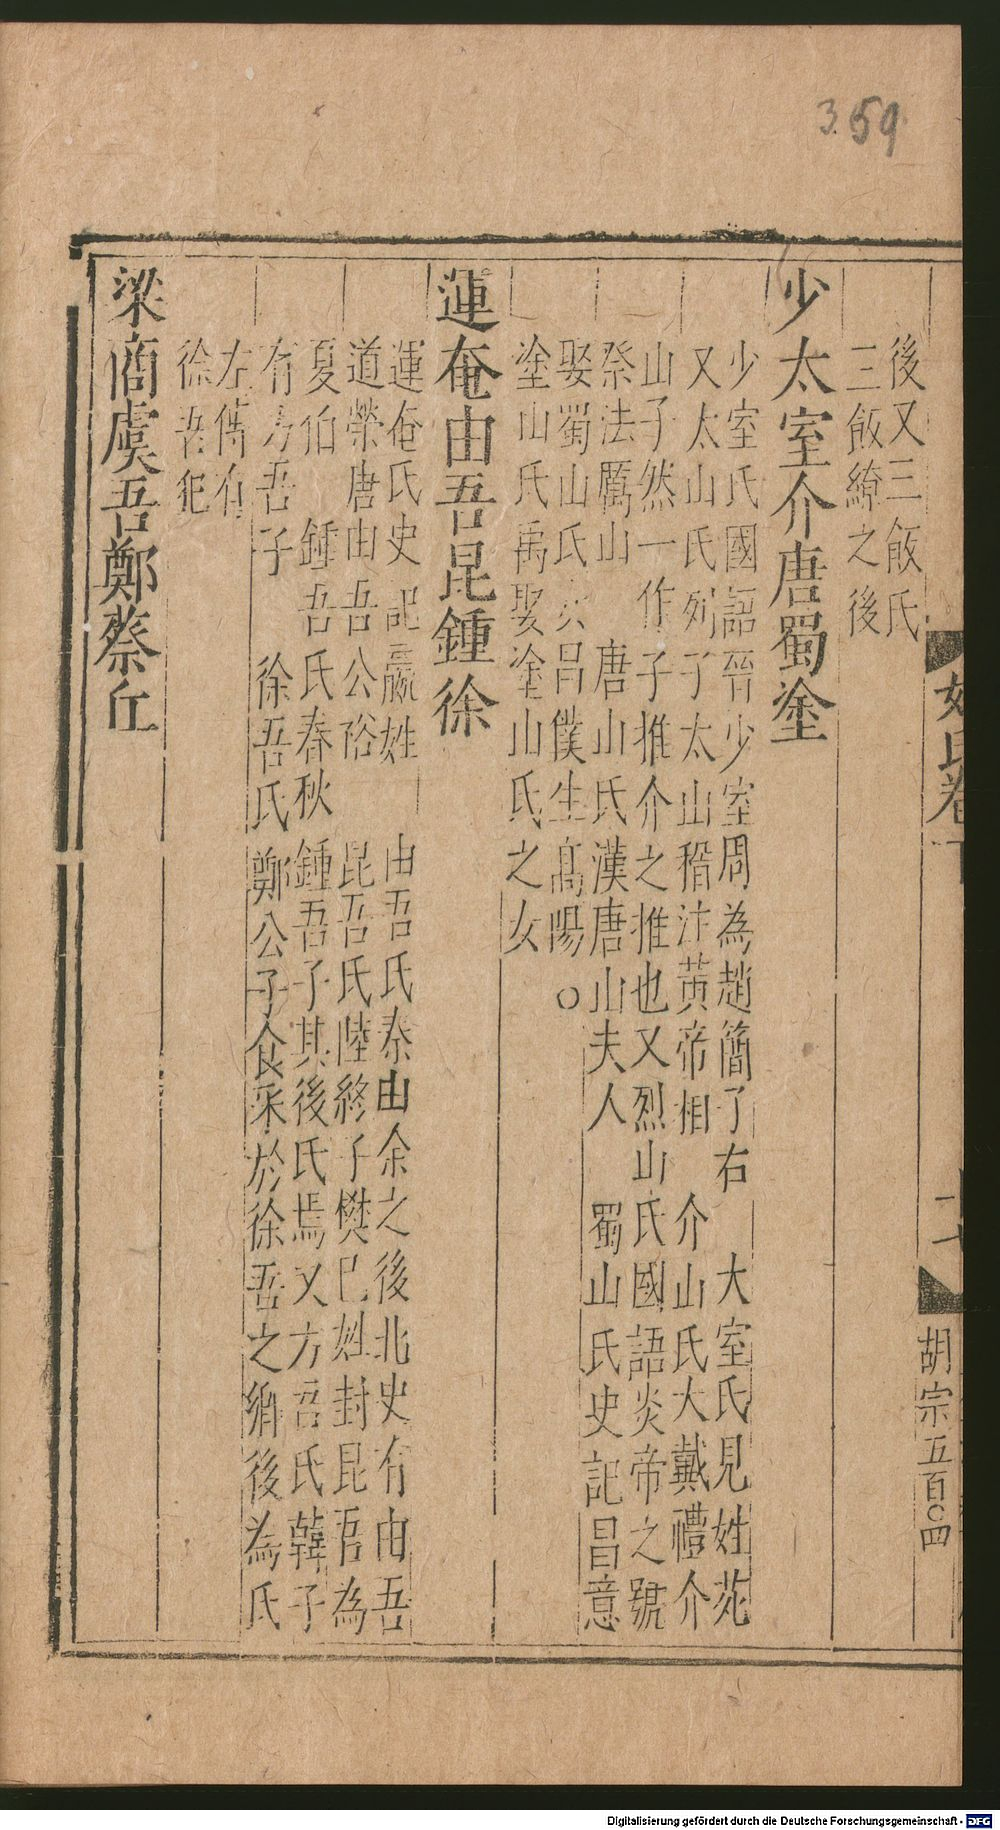 359
後又三飯氏
三飯繚之後
少太室介唐蜀塗
少室氏國語晉少室周為趙簡子右 大室氏見姓苑
又太山氏列子太山稽注黃帝相 介山氏大戴禮介
山子然一作子推介之推也又烈山氏國語炎帝之號
祭法厲山 唐山氏漢唐山夫人 蜀山氏史記昌意
娶蜀山氏 昌僕生高陽○
塗山氏禹娶塗山氏之女
運奄由吾昆鍾徐
運奄氏史記嬴姓 由吾氏秦由余之後北史有由吾
道榮唐由吾公裕 昆吾氏陸終子樊己姓封昆吾為
夏伯 鍾吾氏春秋鍾吾子其後氏焉又方吾氏韓子
有方吾子 徐吾氏鄭公子食采於徐吾之鄉後為氏
左傳有
徐吾犯
梁商虞吾鄭蔡丘
姓氏卷下
胡宗五百○四
Digitalisierung gefördert durch die Deutsche Forschungsgemeinschaft - DFG